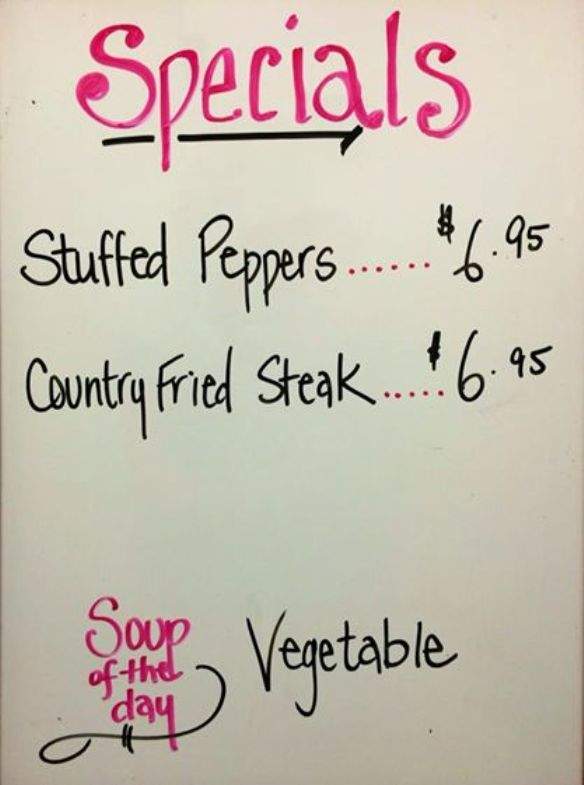 Specials
Stuffed Peppers ...... $6.95
Country Fried Steak ..... $6.95
Soup
of the
day
Vegetable